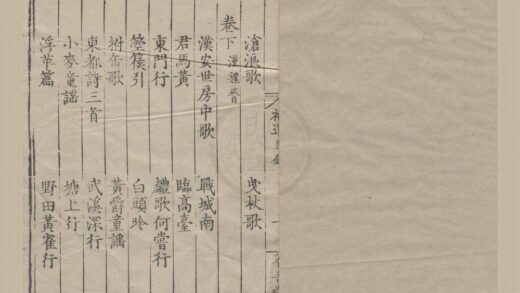 滄浪歌 曳杖歌
卷下 漢魏晉
漢安世房中歌 戰城南
君馬黃 臨高臺
東門行 豔歌何嘗行
箜篌引 白頭吟
拊缶歌 黃爵童謡
東都詩三首 武溪深行
小麥童謡 塘上行
浮萍篇 野田黃雀行